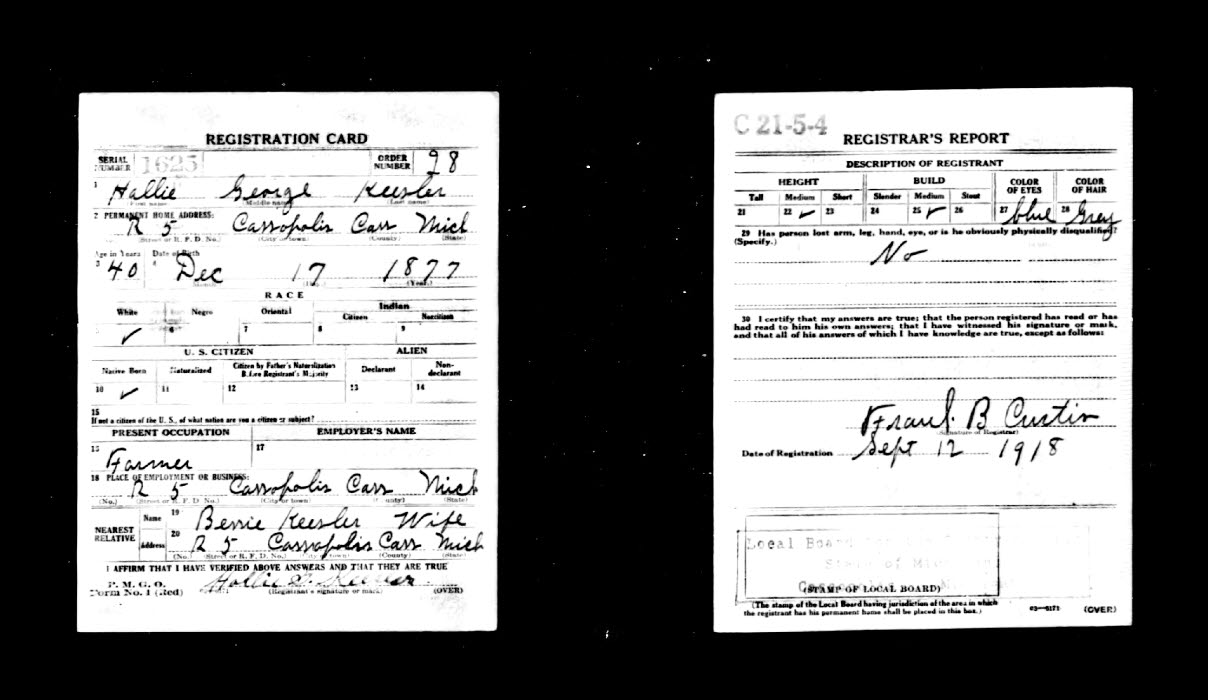 REGISTRATION CARD
SERIAL NUMBER 1625 ORDER NUMBER 98
1 Hallie George Keesler
First name (Middle name) (Last name)
2 PERMANENT HOME ADDRESS:
R 5 Cassopolis Cass Mich
(Street or R. F. D. No.) (City or town) (County) (State)
Age in Years Date of Birth
3 40 4 Dec 17 1877
Month (Day.) (Year.)
RACE
White Negro Oriental Indian
Citizen Noncitizen
✓ 6 7 8 9
U. S. CITIZEN ALIEN
Native Born Naturalized Citizen by Father's Naturalization Before Registrant's Majority Declarant Non-declarant
10 ✓ 11 12 13 14
15
If not a citizen of the U. S., of what nation are you a citizen or subject?
PRESENT OCCUPATION EMPLOYER'S NAME
16 Farmer 17
18 PLACE OF EMPLOYMENT OR BUSINESS:
R 5 Cassopolis Cass Mich
(No.) (Street or R. F. D. No.) (City or town) (County) (State)
NEAREST RELATIVE Name 19 Bessie Keesler Wife
Address 20 R 5 Cassopolis Cass Mich
(No.) (Street or R. F. D. No.) (City or town) (County) (State)
I AFFIRM THAT I HAVE VERIFIED ABOVE ANSWERS AND THAT THEY ARE TRUE
P. M. G. O.
Form No. 1 (Red) Hallie G. Keesler
(Registrant's signature or mark) (OVER)
C 21-5-4
REGISTRAR'S REPORT
DESCRIPTION OF REGISTRANT
HEIGHT BUILD COLOR OF EYES COLOR OF HAIR
Tall Medium Short Slender Medium Stout
21 22 ✓ 23 24 25 ✓ 26 27 blue 28 Grey
29 Has person lost arm, leg, hand, eye, or is he obviously physically disqualified?
(Specify.)
No
30 I certify that my answers are true; that the person registered has read or has
had read to him his own answers; that I have witnessed his signature or mark,
and that all of his answers of which I have knowledge are true, except as follows:
B Curtis
(Signature of Registrar)
Date of Registration Sept 12 1918
Local Board
State of
(STAMP OF LOCAL BOARD)
(The stamp of the Local Board having jurisdiction of the area in which
the registrant has his permanent home shall be placed in this box.)
03—6171 (OVER)